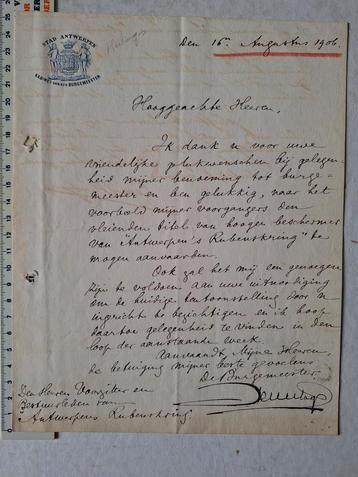 STAD ANTWERPEN
KABINET VAN DEN BURGEMEESTER
Den 16en Augustus 1906.
Hooggeachte Heeren,
Ik dank u voor uwe
vriendelijke gelukwenschen bij gelegen-
heid mijner benoeming tot burge-
meester en ben gelukkig, naar het
voorbeeld mijner voorgangers den
vleienden titel van hoogen beschermer
van "Antwerpen's Rubenskring" te
mogen aanvaarden.
Ook zal het mij een genoegen
zijn te voldoen aan uwe uitnoodiging
om de huidige tentoonstelling door u
ingericht te bezichtigen en ik hoop
daartoe gelegenheid te vinden in den
loop der aanstaande week.
Aanvaardt, Mijne Heeren,
de betuiging mijner beste gevoelens
De Burgemeester
Den Heeren Voorzitter en
Bestuurleden van
Antwerpens Rubenskring.